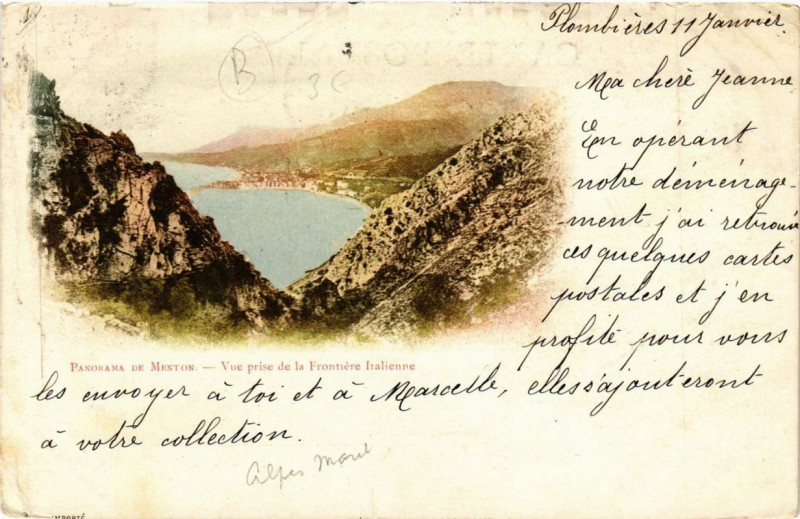 Plombières 11 Janvier.
B
36
Ma cheré Jeanne
En opérant
notre déménage-
ment j'ai retrouvé
ces quelques cartes
postales et j'en
profite pour vous
PANORAMA DE MENTON. — Vue prise de la Frontière Italienne
les envoyer à toi et à Marcelle, elles s'ajouteront
à votre collection.
Alpes Marit